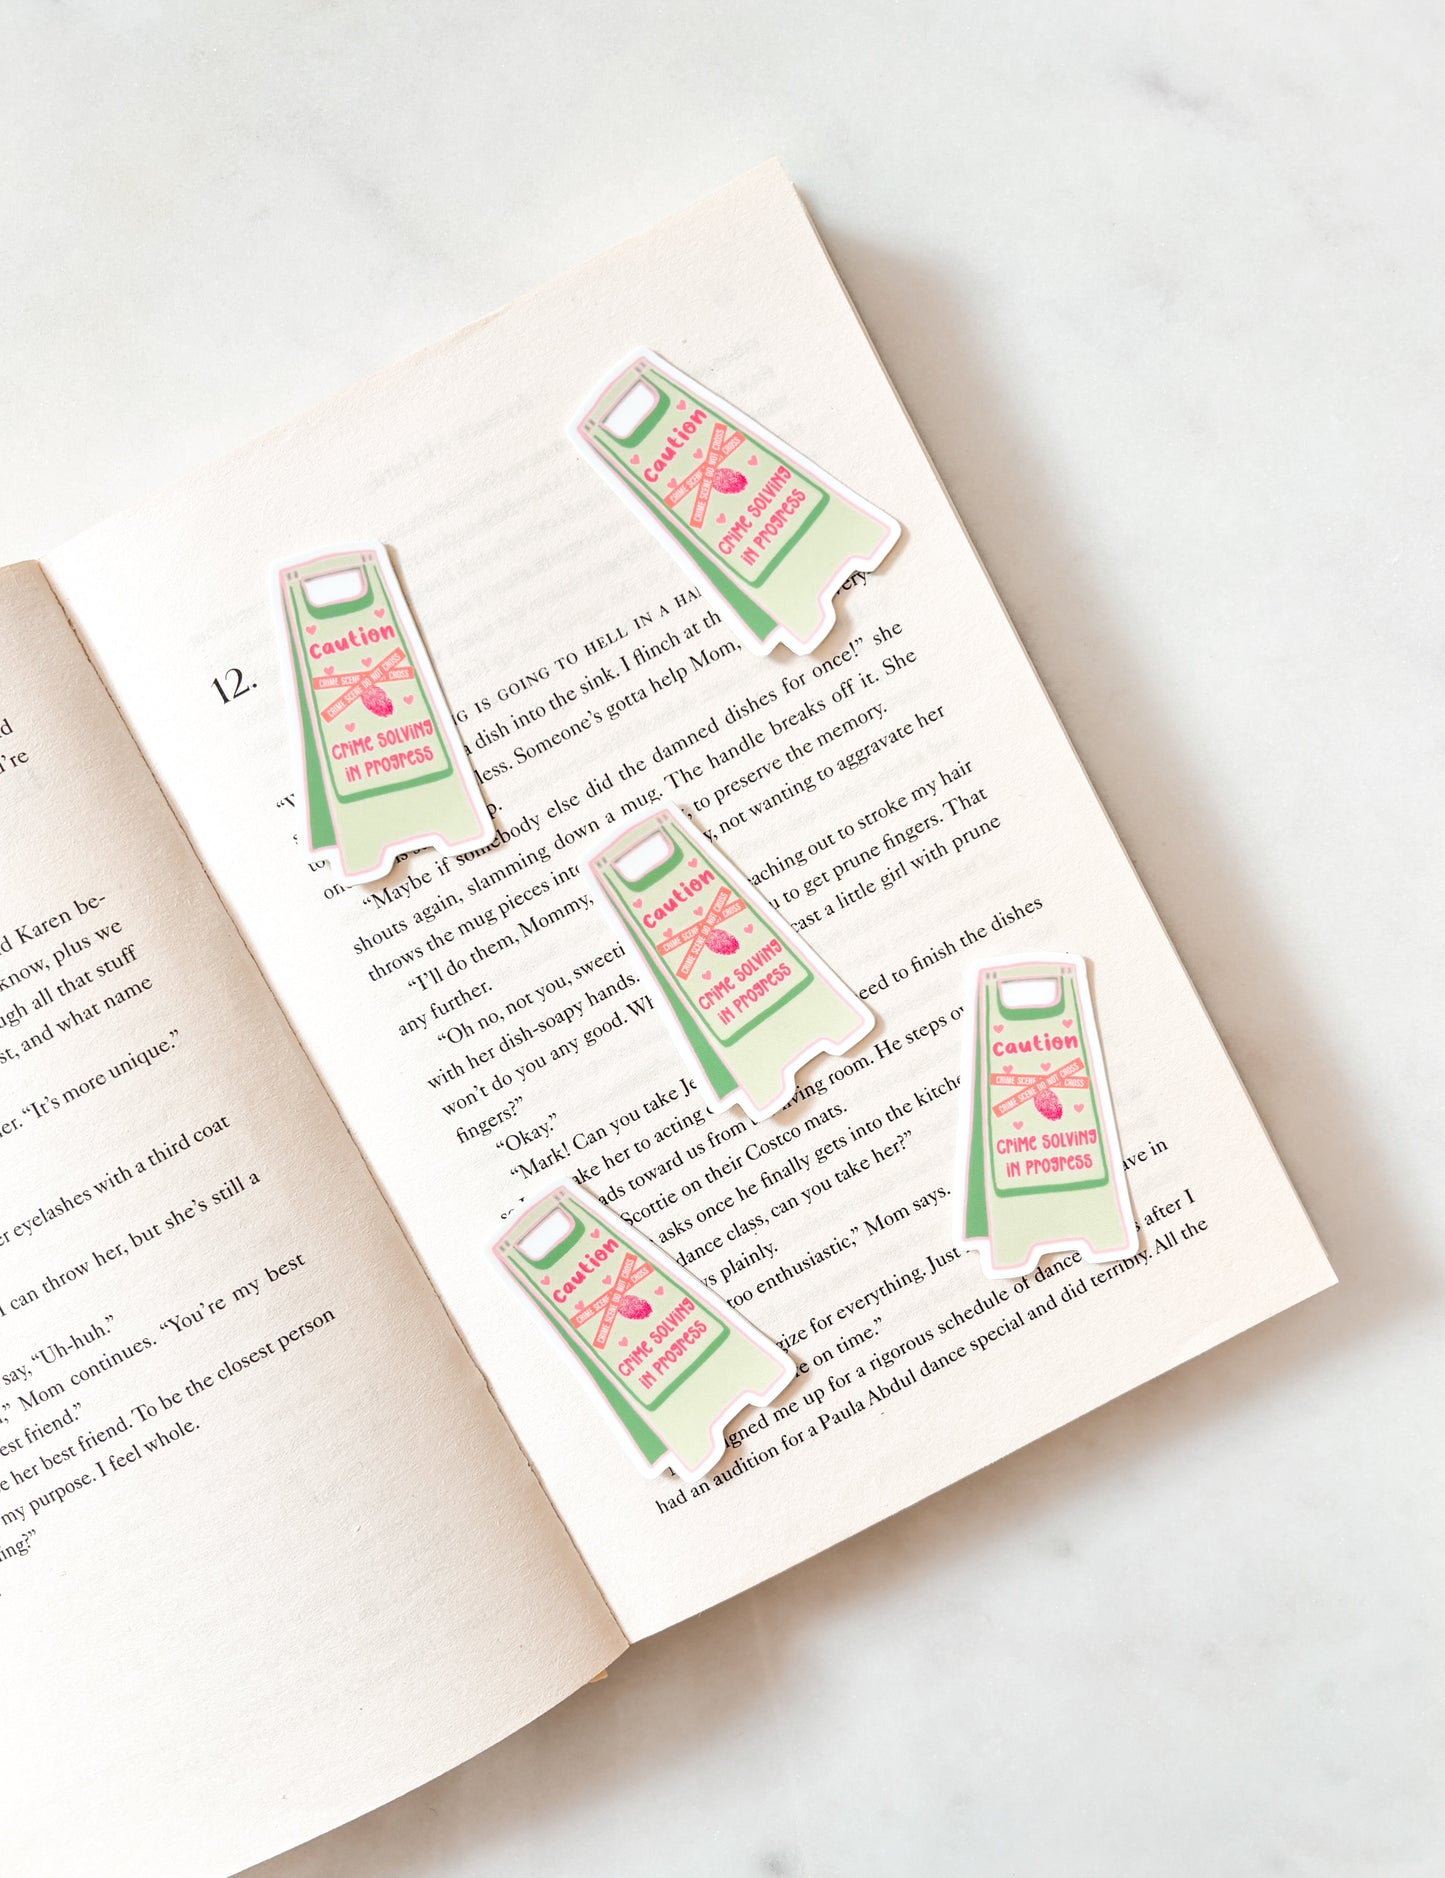 d
I're
d Karen be-
know, plus we
ugh all that stuff
st, and what name
er. “It’s more unique.”
er eyelashes with a third coat
I can throw her, but she’s still a
say, “Uh-huh.”
,” Mom continues. “You’re my best
est friend.”
e her best friend. To be the closest person
my purpose. I feel whole.
ing?”
12.
G IS GOING TO HELL IN A HA
a dish into the sink. I flinch at th
less. Someone’s gotta help Mom,
p.
“Maybe if somebody else did the damned dishes for once!” she
shouts again, slamming down a mug. The handle breaks off it. She
throws the mug pieces into to preserve the memory.
“I’ll do them, Mommy, y, not wanting to aggravate her
any further.
“Oh no, not you, sweeti aching out to stroke my hair
with her dish-soapy hands. u to get prune fingers. That
won’t do you any good. Wh cast a little girl with prune
fingers?”
“Okay.”
“Mark! Can you take Je eed to finish the dishes
ake her to acting
ads toward us from living room. He steps ov
Scottie on their Costco mats.
asks once he finally gets into the kitche
dance class, can you take her?”
ys plainly.
too enthusiastic,” Mom says.
gize for everything. Just ave in
e on time.”
igned me up for a rigorous schedule of dance s after I
had an audition for a Paula Abdul dance special and did terribly. All the
Caution
CRIME SCENE DO NOT CROSS
CRIME SCENE CROSS
CRIME SOLVING
IN PROGRESS
Caution
CRIME SCENE DO NOT CROSS
CRIME SCENE CROSS
CRIME SOLVING
IN PROGRESS
Caution
CRIME SCENE DO NOT CROSS
CRIME SCENE CROSS
CRIME SOLVING
IN PROGRESS
Caution
CRIME SCENE DO NOT CROSS
CRIME SCENE CROSS
CRIME SOLVING
IN PROGRESS
Caution
CRIME SCENE DO NOT CROSS
CRIME SCENE CROSS
CRIME SOLVING
IN PROGRESS